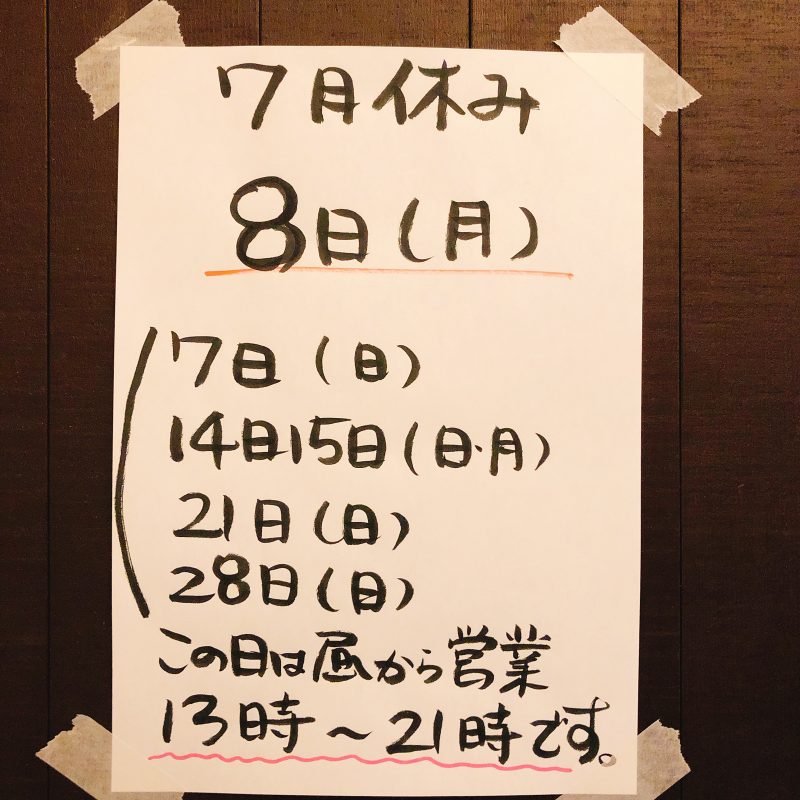 7月休み
8日(月)
7日(日)
14日15日(日・月)
21日(日)
28日(日)
この日は昼から営業
13時～21時です。